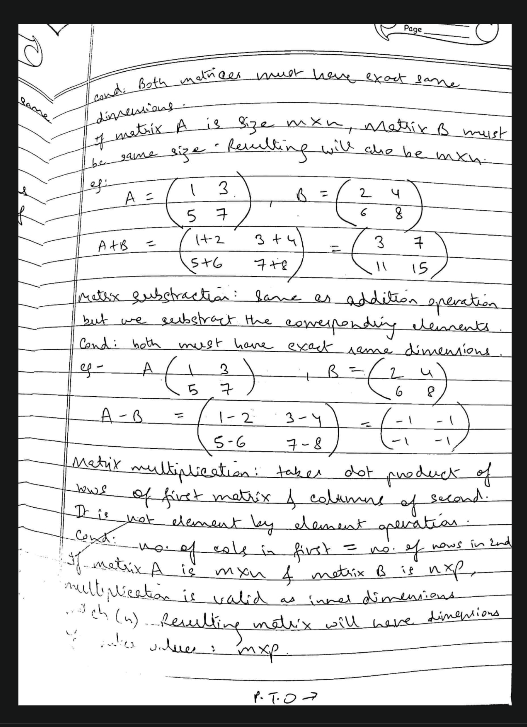 Page
same
cond: Both matrices must have exact same
dimensions.
If matrix A is size m×n, Matrix B must
be same size. Resulting will also be m×n.
eg:
A = ( 1 3 ; 5 7 ) , B = ( 2 4 ; 6 8 )
A+B = ( 1+2 3+4 ; 5+6 7+8 ) = ( 3 7 ; 11 15 )
Matrix substraction: same as addition operation
but we substract the corresponding elements.
Cond: both must have exact same dimensions.
eg- A ( 1 3 ; 5 7 ) , B = ( 2 4 ; 6 8 )
A - B = ( 1-2 3-4 ; 5-6 7-8 ) = ( -1 -1 ; -1 -1 )
Matrix multiplication: takes dot product of
rows of first matrix & columns of second.
It is not element by element operation.
Cond: no. of cols in first = no. of rows in 2nd
If matrix A is m×n & matrix B is n×p,
multiplication is valid as inner dimensions
(n). Resulting matrix will have dimensions
values : m×p.
P.T.O →